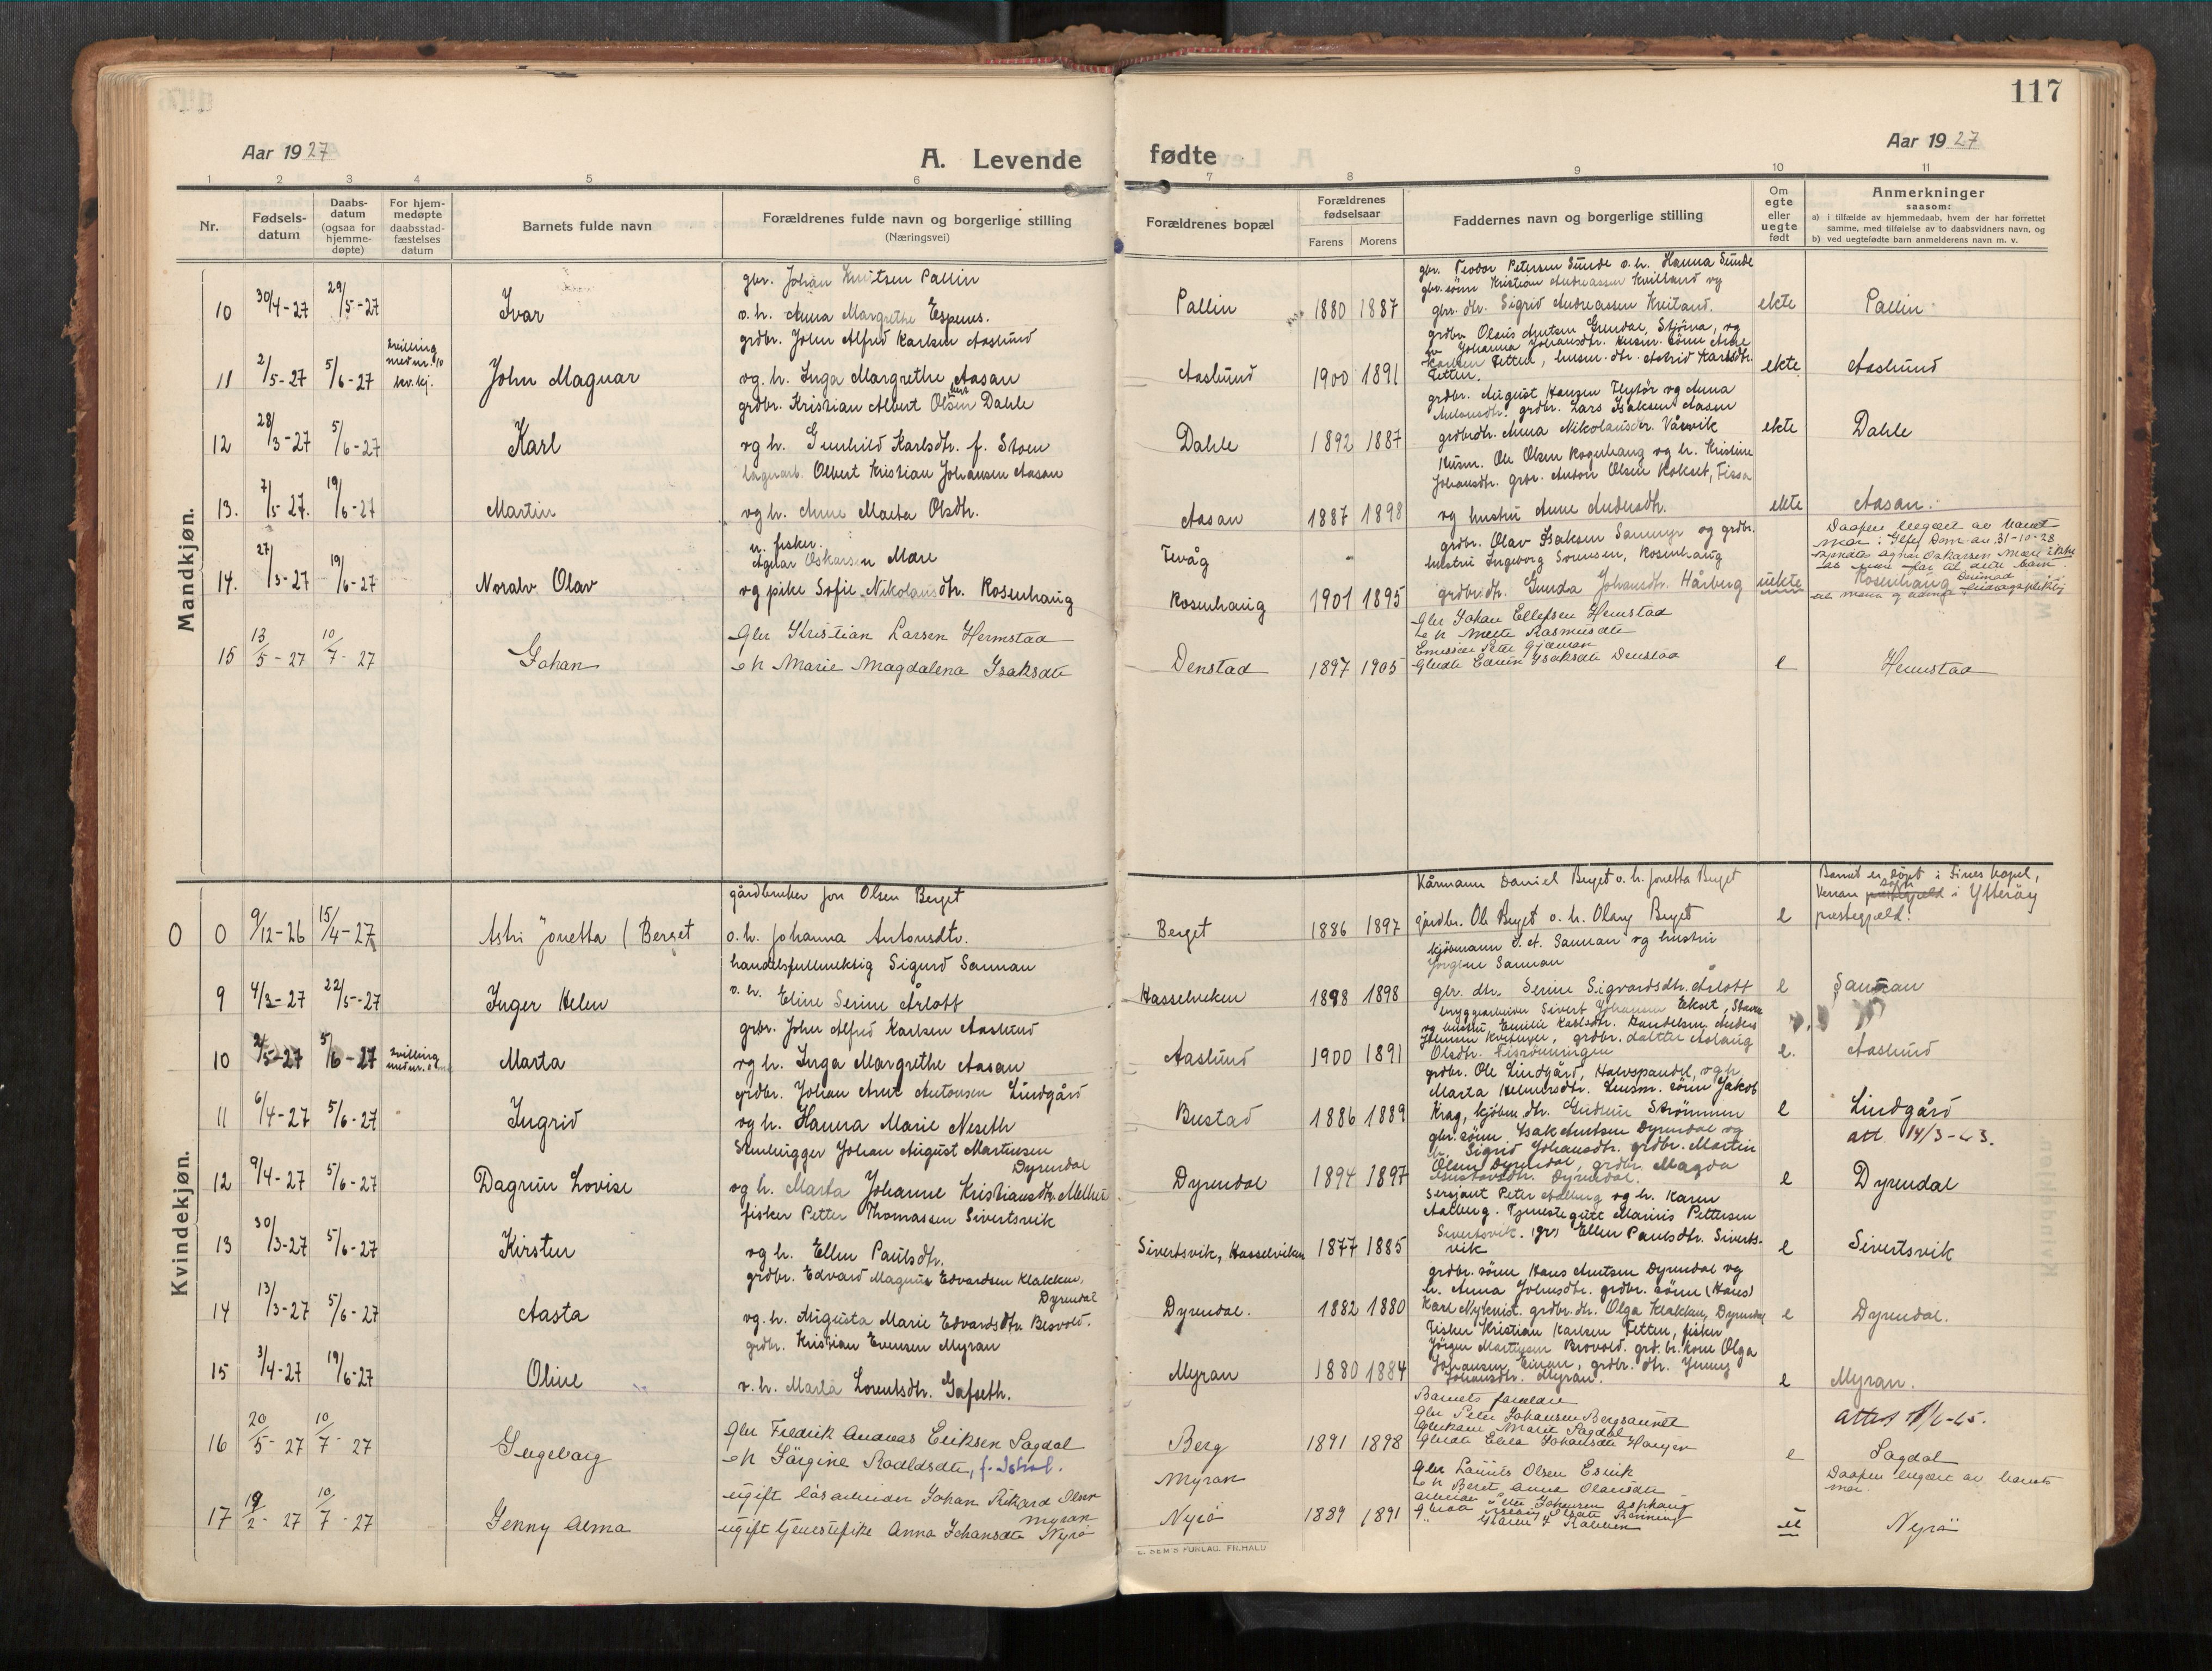 117
Aar 1927
A. Levende
fødte
Aar 1927
1 2 3 4 5 6 7 8 9 10 11
Nr.
Fødsels-
datum
Daabs-
datum
(ogsaa for
hjemme-
døpte)
For hjem-
medøpte
daabsstad-
fæstelses
datum
Barnets fulde navn
Forældrenes fulde navn og borgerlige stilling
(Næringsvei)
Forældrenes bopæl
Forældrenes
fødselsaar
Farens
Morens
Faddernes navn og borgerlige stilling
Om
egte
eller
uegte
født
Anmerkninger
saasom:
a) i tilfælde av hjemmedaab, hvem der har forrettet
samme, med tilføielse av to daabsvidners navn, og
b) ved uegtefødte barn anmelderens navn m. v.
Mandkjøn.
10 30/4-27 29/5-27 Ivar
gbr. Johan Knutsen Pallin
o. h. Anna Margrethe Espnes.
Pallin 1880 1887
gbr. Teodor Petersen Sunde o. h. Hanna Sunde
gbr. sønn Kristian Andreassen Kvitland og
gbr. dtr. Sigrid Andreassen Kvitland.
ekte Pallin
11 2/5-27 5/6-27
tvilling
med nr. 10
kv.kj.
John Magnar
grdbr. John Alfred Karlsen Aaslund
og. h. Inga Margrethe Aasan
Aaslund 1900 1891
grdbr. Olaus Antsen Grindal, Stjørna, og
hr Johanna Johansdtr. husm. sønn Arne
Karlsen Fetten, husm. dtr. Astrid Karlsdtr.
Fetten.
ekte Aaslund
12 28/3-27 5/6-27 Karl
grdbr. Kristian Albert Olsen Dahle
og h. Gunhild Karlsdtr. f. Stoen
Dahle 1892 1887
grdbr. August Hansen Flytør og Anna
Antonsdtr. grdbr. Lars Isaksen Aasan
grdbrdtr. Anna Nikolausdr. Vårvik
ekte Dahle
13. 7/5-27. 19/6-27 Martin
lagerarb. Olbert Kristian Johansen Aasan
og h. Anne Marta Olsdtr.
Aasan 1887 1898
Husm. Ole Olsen Rogenhaug og h. Kristine
Johansdtr. grbr. Anton Olsen Rokset, Fissa
og hustru Anne Andersdtr.
ekte Aasan.
14. 27/3-27 19/6-27 Noralv Olav
u. fisker.
Agnar Oskarsen Mare
og pike Sofie Nikolausdtr. Rosenhaug
Tevåg
Rosenhaug 1901 1895
grdbr. Olav Isaksen Sannmyr og grdbr.
hustru Ingeborg Sorensen, Rosenhaug
grdbrdtr. Gunda Johansdtr. Hårberg
uekte
Daapen begjært av barnets
mor
Rosenhaug
15 13/5-27 10/7-27 Johan
Gbr Kristian Larsen Hermstad
o h Marie Magdalena Isaksdtr
Denstad 1897 1905
Gbr Johan Ellefsen Hermstad
o h Mette Rasmusdtr
Emissær Peter Gjelman
Gbrdtr Edvin Isaksdtr Denstad
e Hermstad
Kvindekjøn.
0 0 9/12-26 15/4-27 Astri Jonetta (Berget
gårdbruker Jon Olsen Berget
o. h. Johanna Antonsdtr.
Berget 1886 1897
Kårmann Daniel Berget o. h. Jonetta Berget
gårdbr. Ole Berget o. h. Olary Berget
e
Barnet er døpt i Fines kapel,
Verran sogn i Ytterøy
prestegjeld.
9 4/3-27 22/5-27 Inger Helen
handelsfullmektig Sigurd Sannan
o. h. Eline Serine Årlott
Hasselviken 1898 1898
kjøbmann O. A. Sannan og hustru
Jørgine Sannan
gbr. dtr. Serine Sigvardsdtr. Årlott
e Sannan
10 2/5-27 5/6-27
tvilling
med nr.
Marta
grbr. John Alfred Karlsen Aaslund
og h. Inga Margrethe Aasan
Aaslund 1900 1891
bryggearbeider Sivert Johansen Ekset,
og hustru Emilie Karlsdtr. Handelsm. Anders
Hansen, grdbr. datter Aslaug
Olsdtr.
e. Aaslund
11 6/4-27 5/6-27 Ingrid
grdbr. Johan Arnt Antonsen Lindgård
og h. Hanna Marie Neseth
Bustad 1886 1889
grdbr. Ole Lindgård, og h.
Marta Helmersdtr. Lensm. sønn Jakob
Krag, kjøbm. dtr. Gudrun Strømmen
e Lindgård
att. 14/3-43.
12 9/4-27 5/6-27 Dagrun Lovise
Stenhugger Johan August Martinsen
Dyrendal
og h. Marta Johanne Kristiansdtr. Melhus
Dyrendal 1894 1897
gbr. sønn Isak Antsen Dyrendal og
h. Sigrid Johansdtr. grdbr. Martin
Olsen Dyrendal, grdbr. Magda
Gustavsdtr. Dyrendal.
e Dyrendal
13 30/3-27 5/6-27 Kirsten
fisker Petter Thomassen Sivertsvik
og h. Ellen Paulsdtr.
Sivertsvik, Hasselviken 1877 1885
Sersjant Peter Aalberg og h. Karen
Aalberg. Tjenestegutt Marius Pettersen
Sivertsvik. Ellen Paulsdtr. Siverts-
vik
e Sivertsvik
14 13/3-27 5/6-27 Aasta
grdbr. Edvard Magnus Edvardsen Klakken,
Dyrendal
og. h. Augusta Marie Edvardsdtr. Besvold.
Dyrendal. 1882 1880
grdbr. sønn Hans Antsen Dyrendal og
h. Anna Johnsdtr. grdbr. sønn (Hans)
Karl Nykvist. grdbr. dtr. Olga Klakken, Dyrendal
e Dyrendal.
15 3/4-27 19/6-27 Oline
grdbr. Kristian Evensen Myran
o. h. Marta Lorentsdtr. Gafseth.
Myran 1880 1884
Fisker Kristian Karlsen Fetten, fisker
Jørgen Martinsen Brovold. grd. br. kone Olga
Johansen Einan, grdbr. dtr. Jenny
Johansdtr. Myran.
e Myran.
16 20/5-27 10/7-27 Ingeborg
Gbr Fredrik Andreas Eriksen Sagdal
o h Jørgine Roaldsdtr,
Berg 1891 1898
Barnets forældre
Gbr Peter Johansen Bergsaunet
Gbrkone Marie Sagdal
Gbrdtr Elida Johansdtr
e
Sagdal
17 19/2-27 10/7-27 Jenny Alma
ugift løsarbeider Johan Rikard Olsen
Myran
ugift tjenestepike Anna Johansdtr Nyrø
Myran
Nyrø 1889 1891
Gbr Laurits Olsen Esvik
o h Beret Anna Olausdtr
Arbeider Peter Johansen Asphaug
u
Daapen begjært av barnets
mor
Nyrø
E. SEM'S FORLAG. FR.HALD